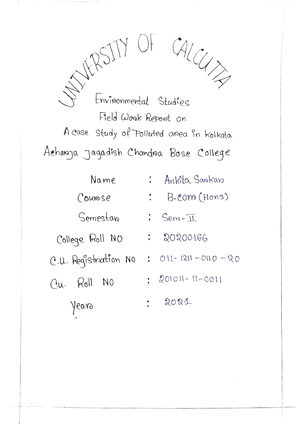 UNIVERSITY OF CALCUTTA
Environmental Studies
Field Work Report on
A case Study of Polluted area in Kolkata
Acharya Jagadish Chandra Bose College
Name : Ankita Sarkar
Course : B.com (Hons)
Semester : Sem-II
College Roll NO : 20200166
C.U. Registration NO : 011-1211-0110-20
Cu. Roll NO : 201011-11-0011
Year : 2021